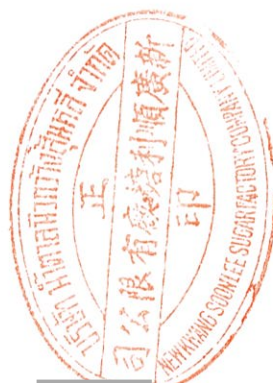 บริษัท น้ำตาลนิวกว้างสุ้นหลี จำกัด
正
新廣順利糖廠有限公司
印
NEW KWANG SOON LEE SUGAR FACTORY COMPANY LIMITED